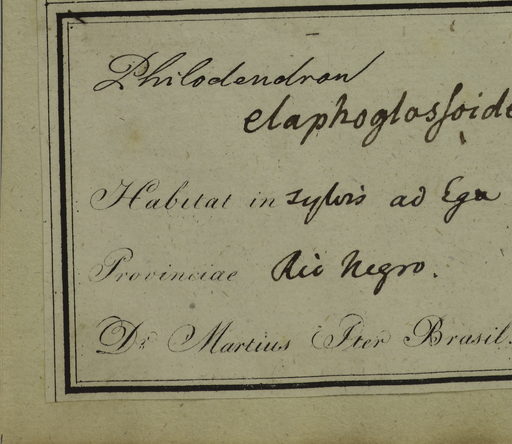 Philodendron
elaphoglossoide
Habitat in sylvis ad Ega
Provinciae Rio Negro.
Dr Martius Iter Brasil.